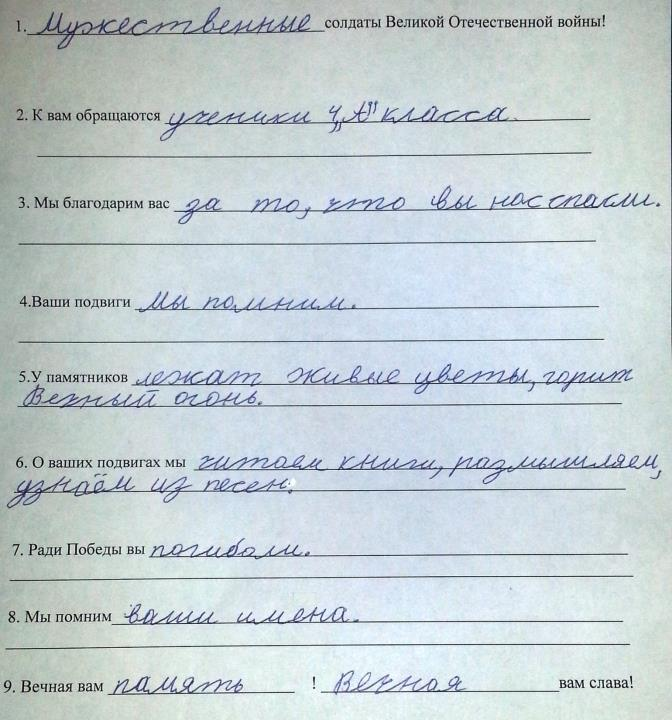 1. Мужественные солдаты Великой Отечественной войны!
2. К вам обращаются ученики 4 „А" класса.
3. Мы благодарим вас за то, что вы нас спасли.
4.Ваши подвиги мы помним.
5.У памятников лежат живые цветы, горит
Вечный огонь.
6. О ваших подвигах мы читаем книги, размышляем,
узнаём из песен.
7. Ради Победы вы погибали.
8. Мы помним ваши имена.
9. Вечная вам память ! Вечная вам слава!